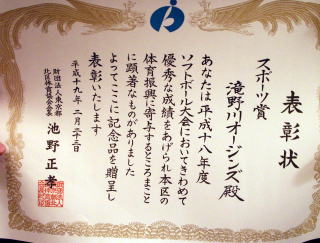 表彰状
スポーツ賞
滝野川オージンズ殿
あなたは平成十八年度
ソフトボール大会においてきわめて
優秀な成績をあげられ本区の
体育振興に寄与するところまこと
に顕著なものがありました
よってここに記念品を贈呈し
表彰いたします
平成十九年二月二十三日
財団法人東京都
北区体育協会会長
池野正孝